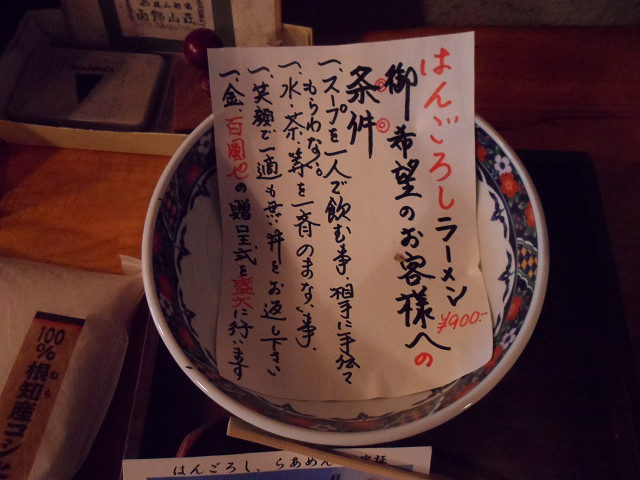 はんごろしラーメン
¥900.-
御希望のお客様への
条件
一、スープを一人で飲む事、相手に手伝て
もらわない。
一、水・茶・等を一斉のまない事、
一、笑顔で一適も無い丼をお返し下さい
一、金、百圓也の贈呈式を盛大に行います
100%
根知産コシヒ
はんごろし、らあめん